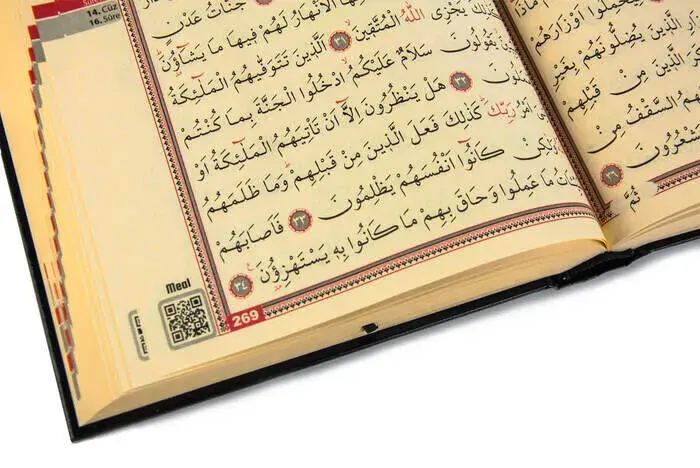 14. Cüz
16. Sûre
جَنَّاتُ عَدْنٍ
الْاَنْهَارُ لَهُمْ فٖيهَا مَا يَشَاؤُنَ
يَجْزِى اللّٰهُ الْمُتَّقٖينَ ٣١ اَلَّذٖينَ تَتَوَفّٰيهُمُ الْمَلٰٓئِكَةُ
يَقُولُونَ سَلَامٌ عَلَيْكُمُ ادْخُلُوا الْجَنَّةَ بِمَا كُنْتُمْ
٣٢ هَلْ يَنْظُرُونَ اِلَّٓا اَنْ تَاْتِيَهُمُ الْمَلٰٓئِكَةُ اَوْ
اَمْرُ رَبِّكَ كَذٰلِكَ فَعَلَ الَّذٖينَ مِنْ قَبْلِهِمْ وَمَا ظَلَمَهُمُ
كَانُٓوا اَنْفُسَهُمْ يَظْلِمُونَ ٣٣ فَاَصَابَهُمْ
مَا عَمِلُوا وَحَاقَ بِهِمْ مَا كَانُوا بِهٖ يَسْتَهْزِؤُنَ ٣٤
Meal
269
اَوْزَارَهُمْ
الَّذٖينَ يُضِلُّونَهُمْ بِغَيْرِ
الَّذٖينَ مِنْ قَبْلِهِمْ
السَّقْفُ مِنْ
٢٦
ثُمَّ